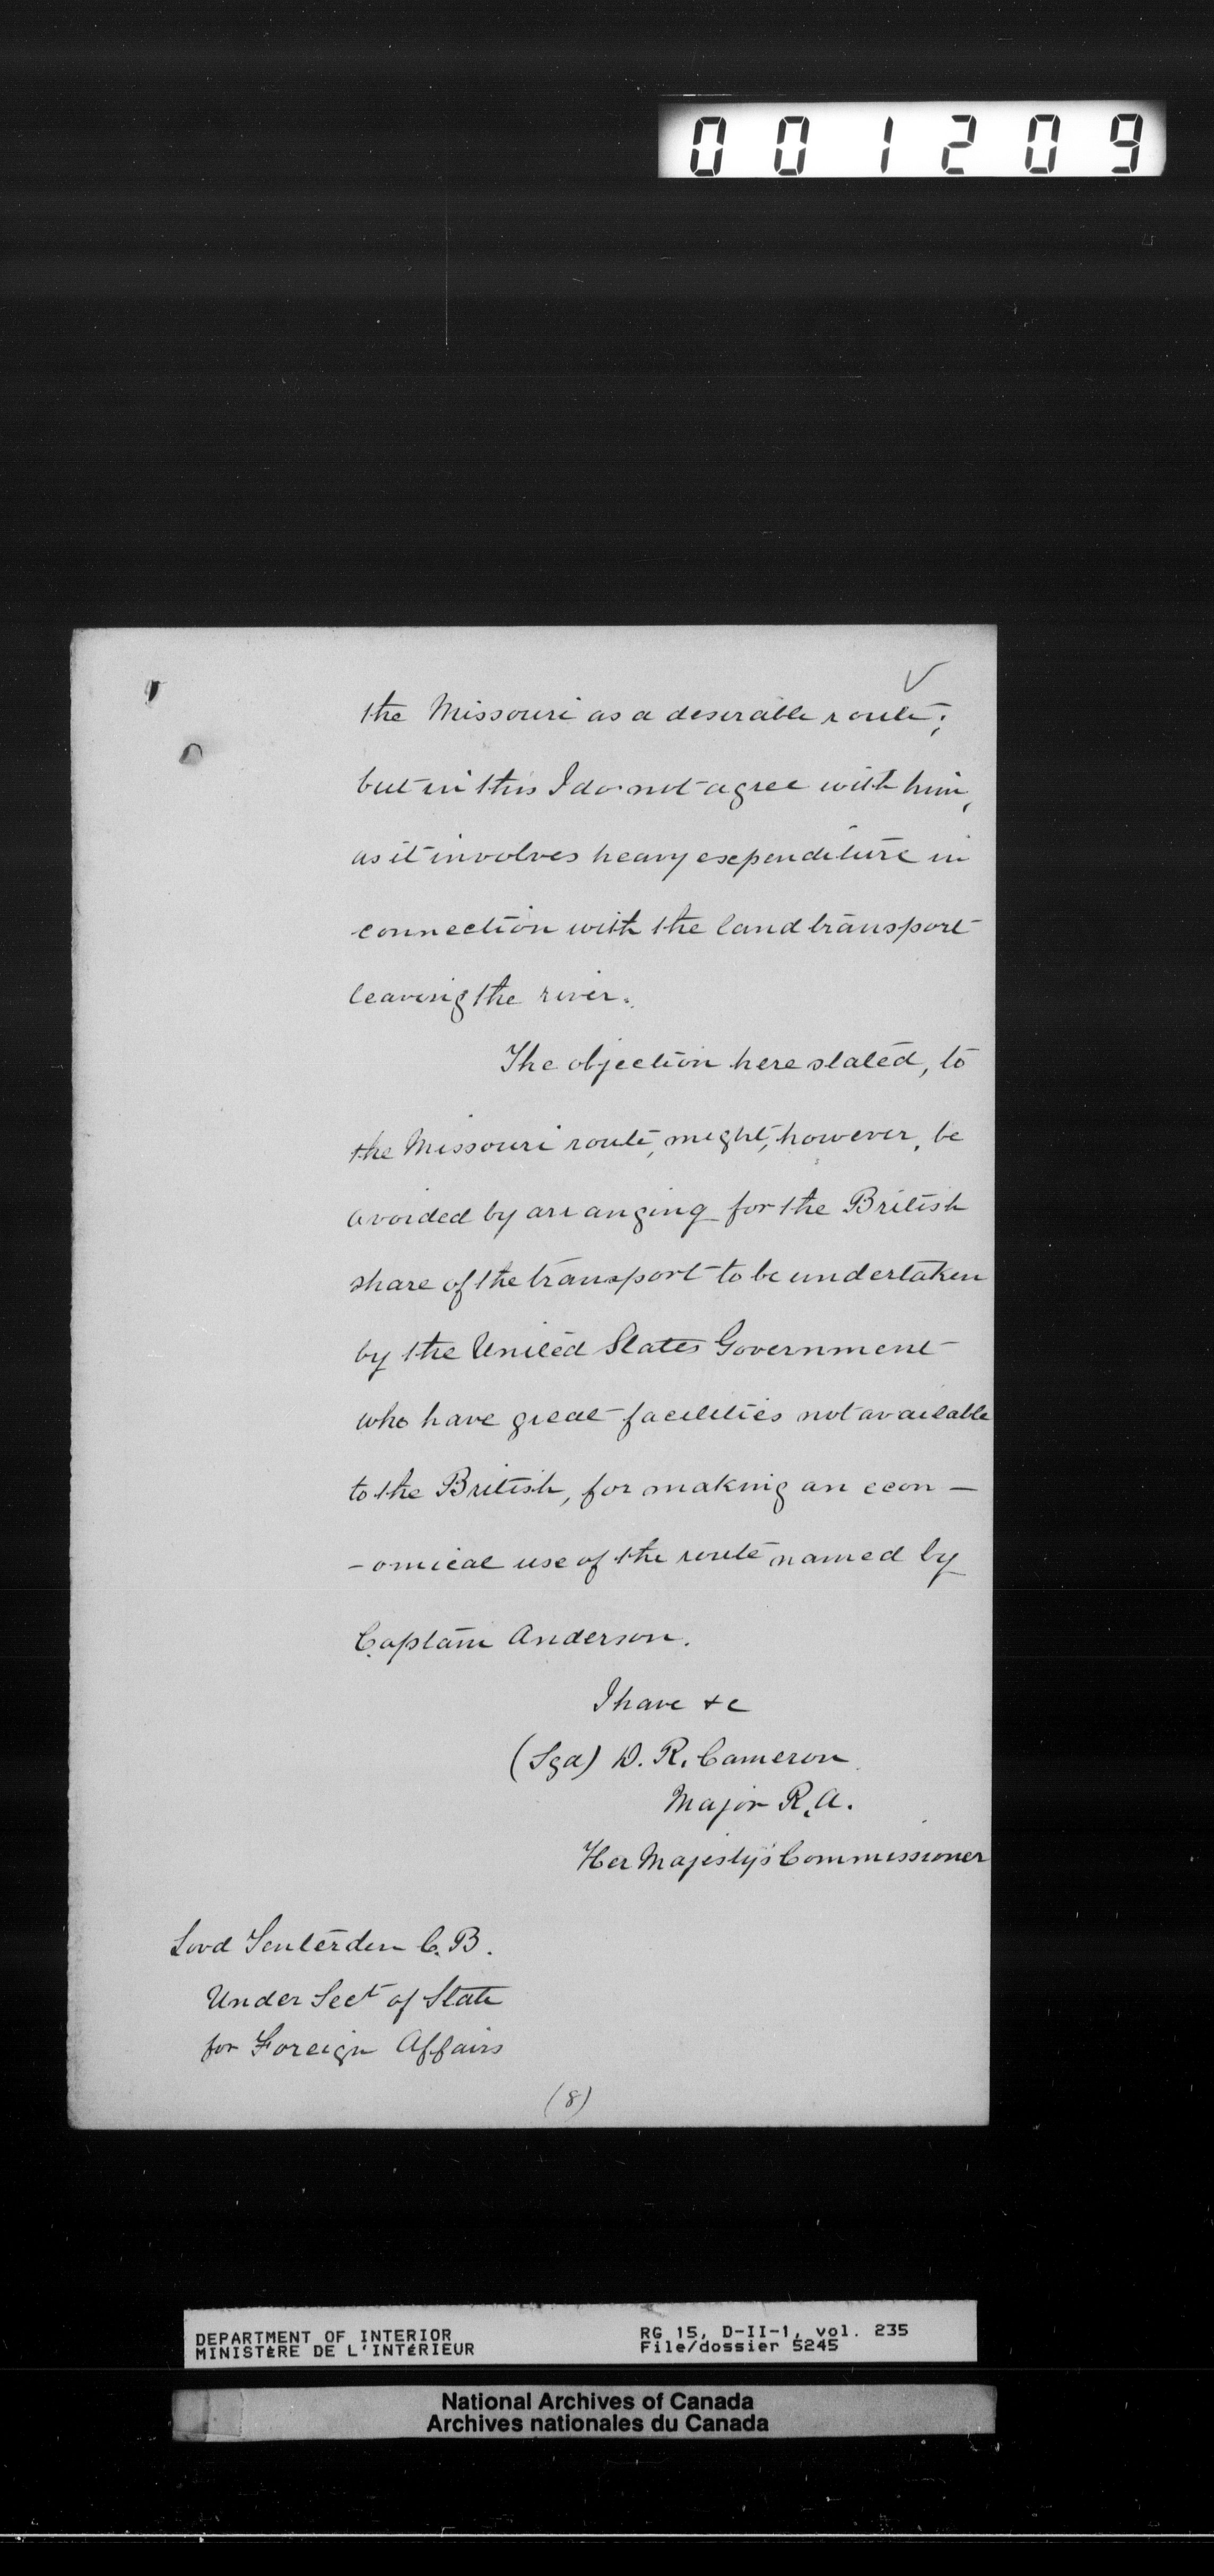 001209
the Missouri as a desirable route;
but in this I do not agree with him,
as it involves heavy expenditure in
connection with the land transport
leaving the river.
The objection here stated, to
the Missouri route, might, however, be
avoided by arranging for the British
share of the transport to be undertaken
by the United States Government
who have great facilities not available
to the British, for making an econ-
-omical use of the route named by
Captain Anderson.
I have &c
(Sgd) D. R. Cameron
Major R.A.
Her Majesty's Commissioner
Lord Tenterden C.B.
Under Sect of State
for Foreign Affairs
(8)
DEPARTMENT OF INTERIOR
MINISTÈRE DE L'INTÉRIEUR
RG 15, D-II-1, vol. 235
File/dossier 5245
National Archives of Canada
Archives nationales du Canada